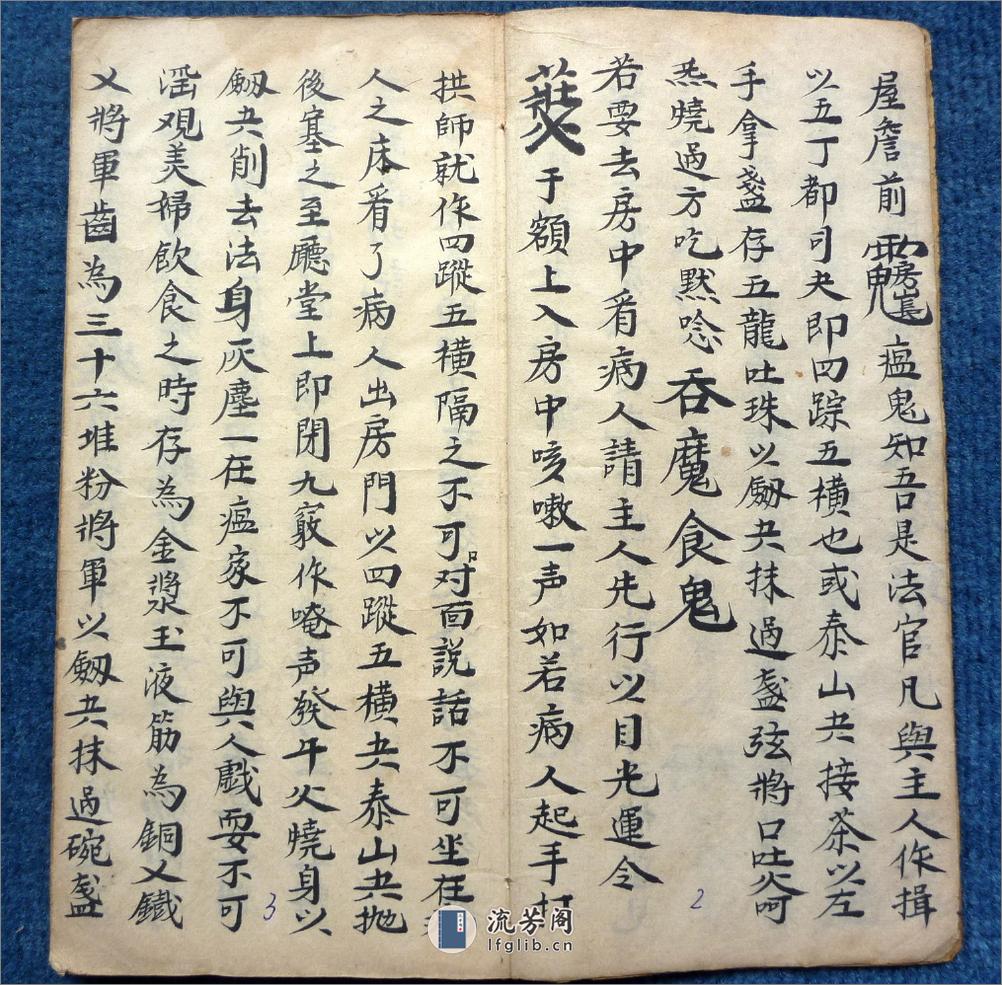 屋詹前瘟鬼知吾是法官凡與主人作揖
以五丁都司夬即四踪五横也或泰山夬接茶以左
手拿盞存五龍吐珠以劔夬抹過盞弦將口吐火呵
炁燒過方吃默唸吞魔食鬼
若要去房中看病人請主人先行以目光運令
于額上入房中咳嗽一声如若病人起手打
拱師就作四蹤五横隔之不可对面説話不可坐在
人之床看了病人出房門以四蹤五横夬泰山夬抛
後塞之至廳堂上即閉九竅作唵声發午火燒身以
劔夬削去法身灰塵一在瘟家不可與人戲耍不可
滛观美婦飲食之時存為金漿玉液筋為銅乂鐵
乂將軍齒為三十六堆粉將軍以劔夬抹過碗盞
2
3
流芳阁
lfglib.cn